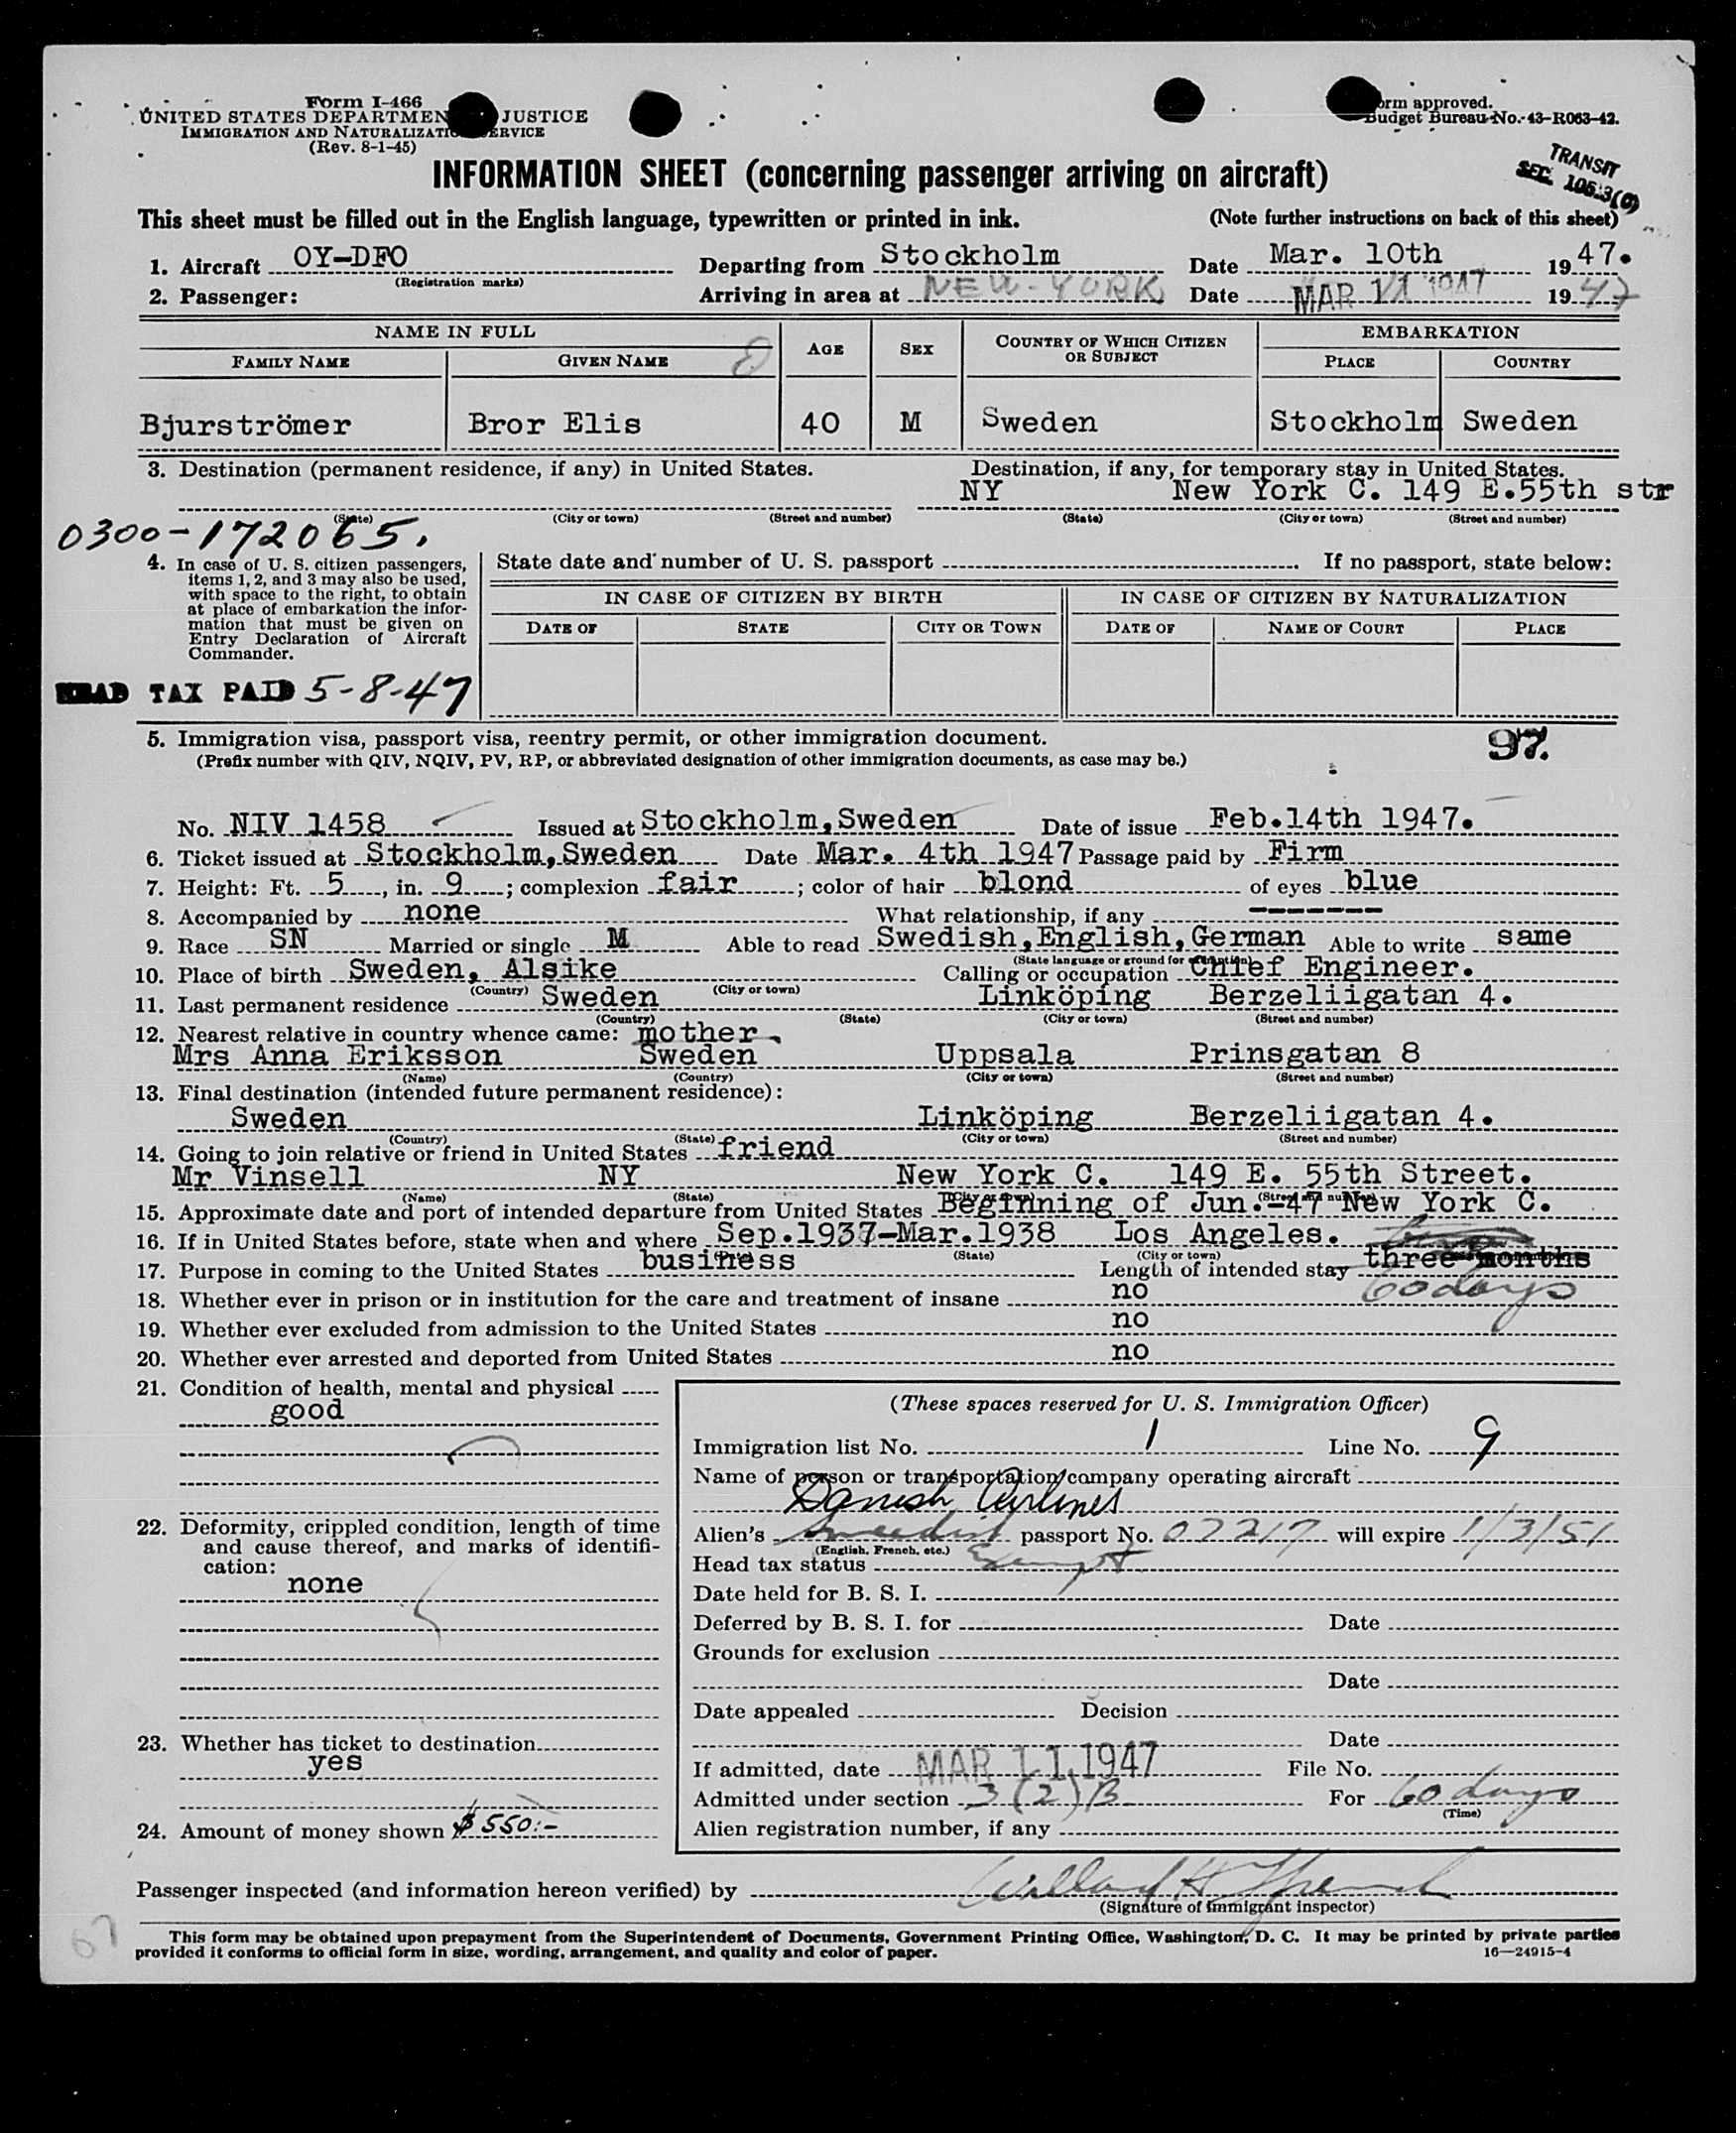 Form I-466
UNITED STATES DEPARTMENT JUSTICE
IMMIGRATION AND NATURALIZATION SERVICE
(Rev. 8-1-45)
Form approved.
Budget Bureau No. 43-R063-42.
INFORMATION SHEET (concerning passenger arriving on aircraft)
TRANSIT
SEC. 105.3(C)
This sheet must be filled out in the English language, typewritten or printed in ink. (Note further instructions on back of this sheet)
1. Aircraft OY-DFO Departing from Stockholm Date Mar. 10th 1947.
(Registration marks)
2. Passenger: Arriving in area at NEW-YORK Date MAR 11 1947 1947
NAME IN FULL AGE SEX COUNTRY OF WHICH CITIZEN OR SUBJECT EMBARKATION
FAMILY NAME GIVEN NAME PLACE COUNTRY
Bjurströmer Bror Elis 40 M Sweden Stockholm Sweden
3. Destination (permanent residence, if any) in United States. Destination, if any, for temporary stay in United States.
NY New York C. 149 E.55th str
(State) (City or town) (Street and number) (State) (City or town) (Street and number)
0300-172065.
4. In case of U. S. citizen passengers,
items 1, 2, and 3 may also be used,
with space to the right, to obtain
at place of embarkation the infor-
mation that must be given on
Entry Declaration of Aircraft
Commander.
State date and number of U. S. passport If no passport, state below:
IN CASE OF CITIZEN BY BIRTH IN CASE OF CITIZEN BY NATURALIZATION
DATE OF STATE CITY OR TOWN DATE OF NAME OF COURT PLACE
HEAD TAX PAID 5-8-47
5. Immigration visa, passport visa, reentry permit, or other immigration document. 97.
(Prefix number with QIV, NQIV, PV, RP, or abbreviated designation of other immigration documents, as case may be.)
No. NIV 1458 Issued at Stockholm,Sweden Date of issue Feb.14th 1947.
6. Ticket issued at Stockholm,Sweden Date Mar. 4th 1947 Passage paid by Firm
7. Height: Ft. 5, in. 9; complexion fair; color of hair blond of eyes blue
8. Accompanied by none What relationship, if any ------
9. Race SN Married or single M Able to read Swedish,English,German Able to write same
(State language or ground for exemption)
10. Place of birth Sweden, Alsike Calling or occupation Chief Engineer.
(Country) (City or town)
11. Last permanent residence Sweden Linköping Berzeliigatan 4.
(Country) (State) (City or town) (Street and number)
12. Nearest relative in country whence came: mother
Mrs Anna Eriksson Sweden Uppsala Prinsgatan 8
(Name) (Country) (City or town) (Street and number)
13. Final destination (intended future permanent residence):
Sweden Linköping Berzeliigatan 4.
(Country) (State) (City or town) (Street and number)
14. Going to join relative or friend in United States friend
Mr Vinsell NY New York C. 149 E. 55th Street.
(Name) (State) (City or town) (Street and number)
15. Approximate date and port of intended departure from United States Beginning of Jun.-47 New York C.
16. If in United States before, state when and where Sep.1937-Mar.1938 Los Angeles.
(Date) (State) (City or town)
17. Purpose in coming to the United States business Length of intended stay three months
60 days
18. Whether ever in prison or in institution for the care and treatment of insane no
19. Whether ever excluded from admission to the United States no
20. Whether ever arrested and deported from United States no
21. Condition of health, mental and physical
good
22. Deformity, crippled condition, length of time
and cause thereof, and marks of identifi-
cation:
none
23. Whether has ticket to destination
yes
24. Amount of money shown $550:-
(These spaces reserved for U. S. Immigration Officer)
Immigration list No. 1 Line No. 9
Name of person or transportation company operating aircraft
Danish Airlines
Alien's Swedish passport No. 02217 will expire 1/3/51
(English, French, etc.)
Head tax status Exempt
Date held for B. S. I.
Deferred by B. S. I. for Date
Grounds for exclusion
Date
Date appealed Decision
Date
If admitted, date MAR 11 1947 File No.
Admitted under section 3(2)B For 60 days
(Time)
Alien registration number, if any
Passenger inspected (and information hereon verified) by
(Signature of immigrant inspector)
67
This form may be obtained upon prepayment from the Superintendent of Documents, Government Printing Office, Washington, D. C. It may be printed by private parties
provided it conforms to official form in size, wording, arrangement, and quality and color of paper. 16—24915-4